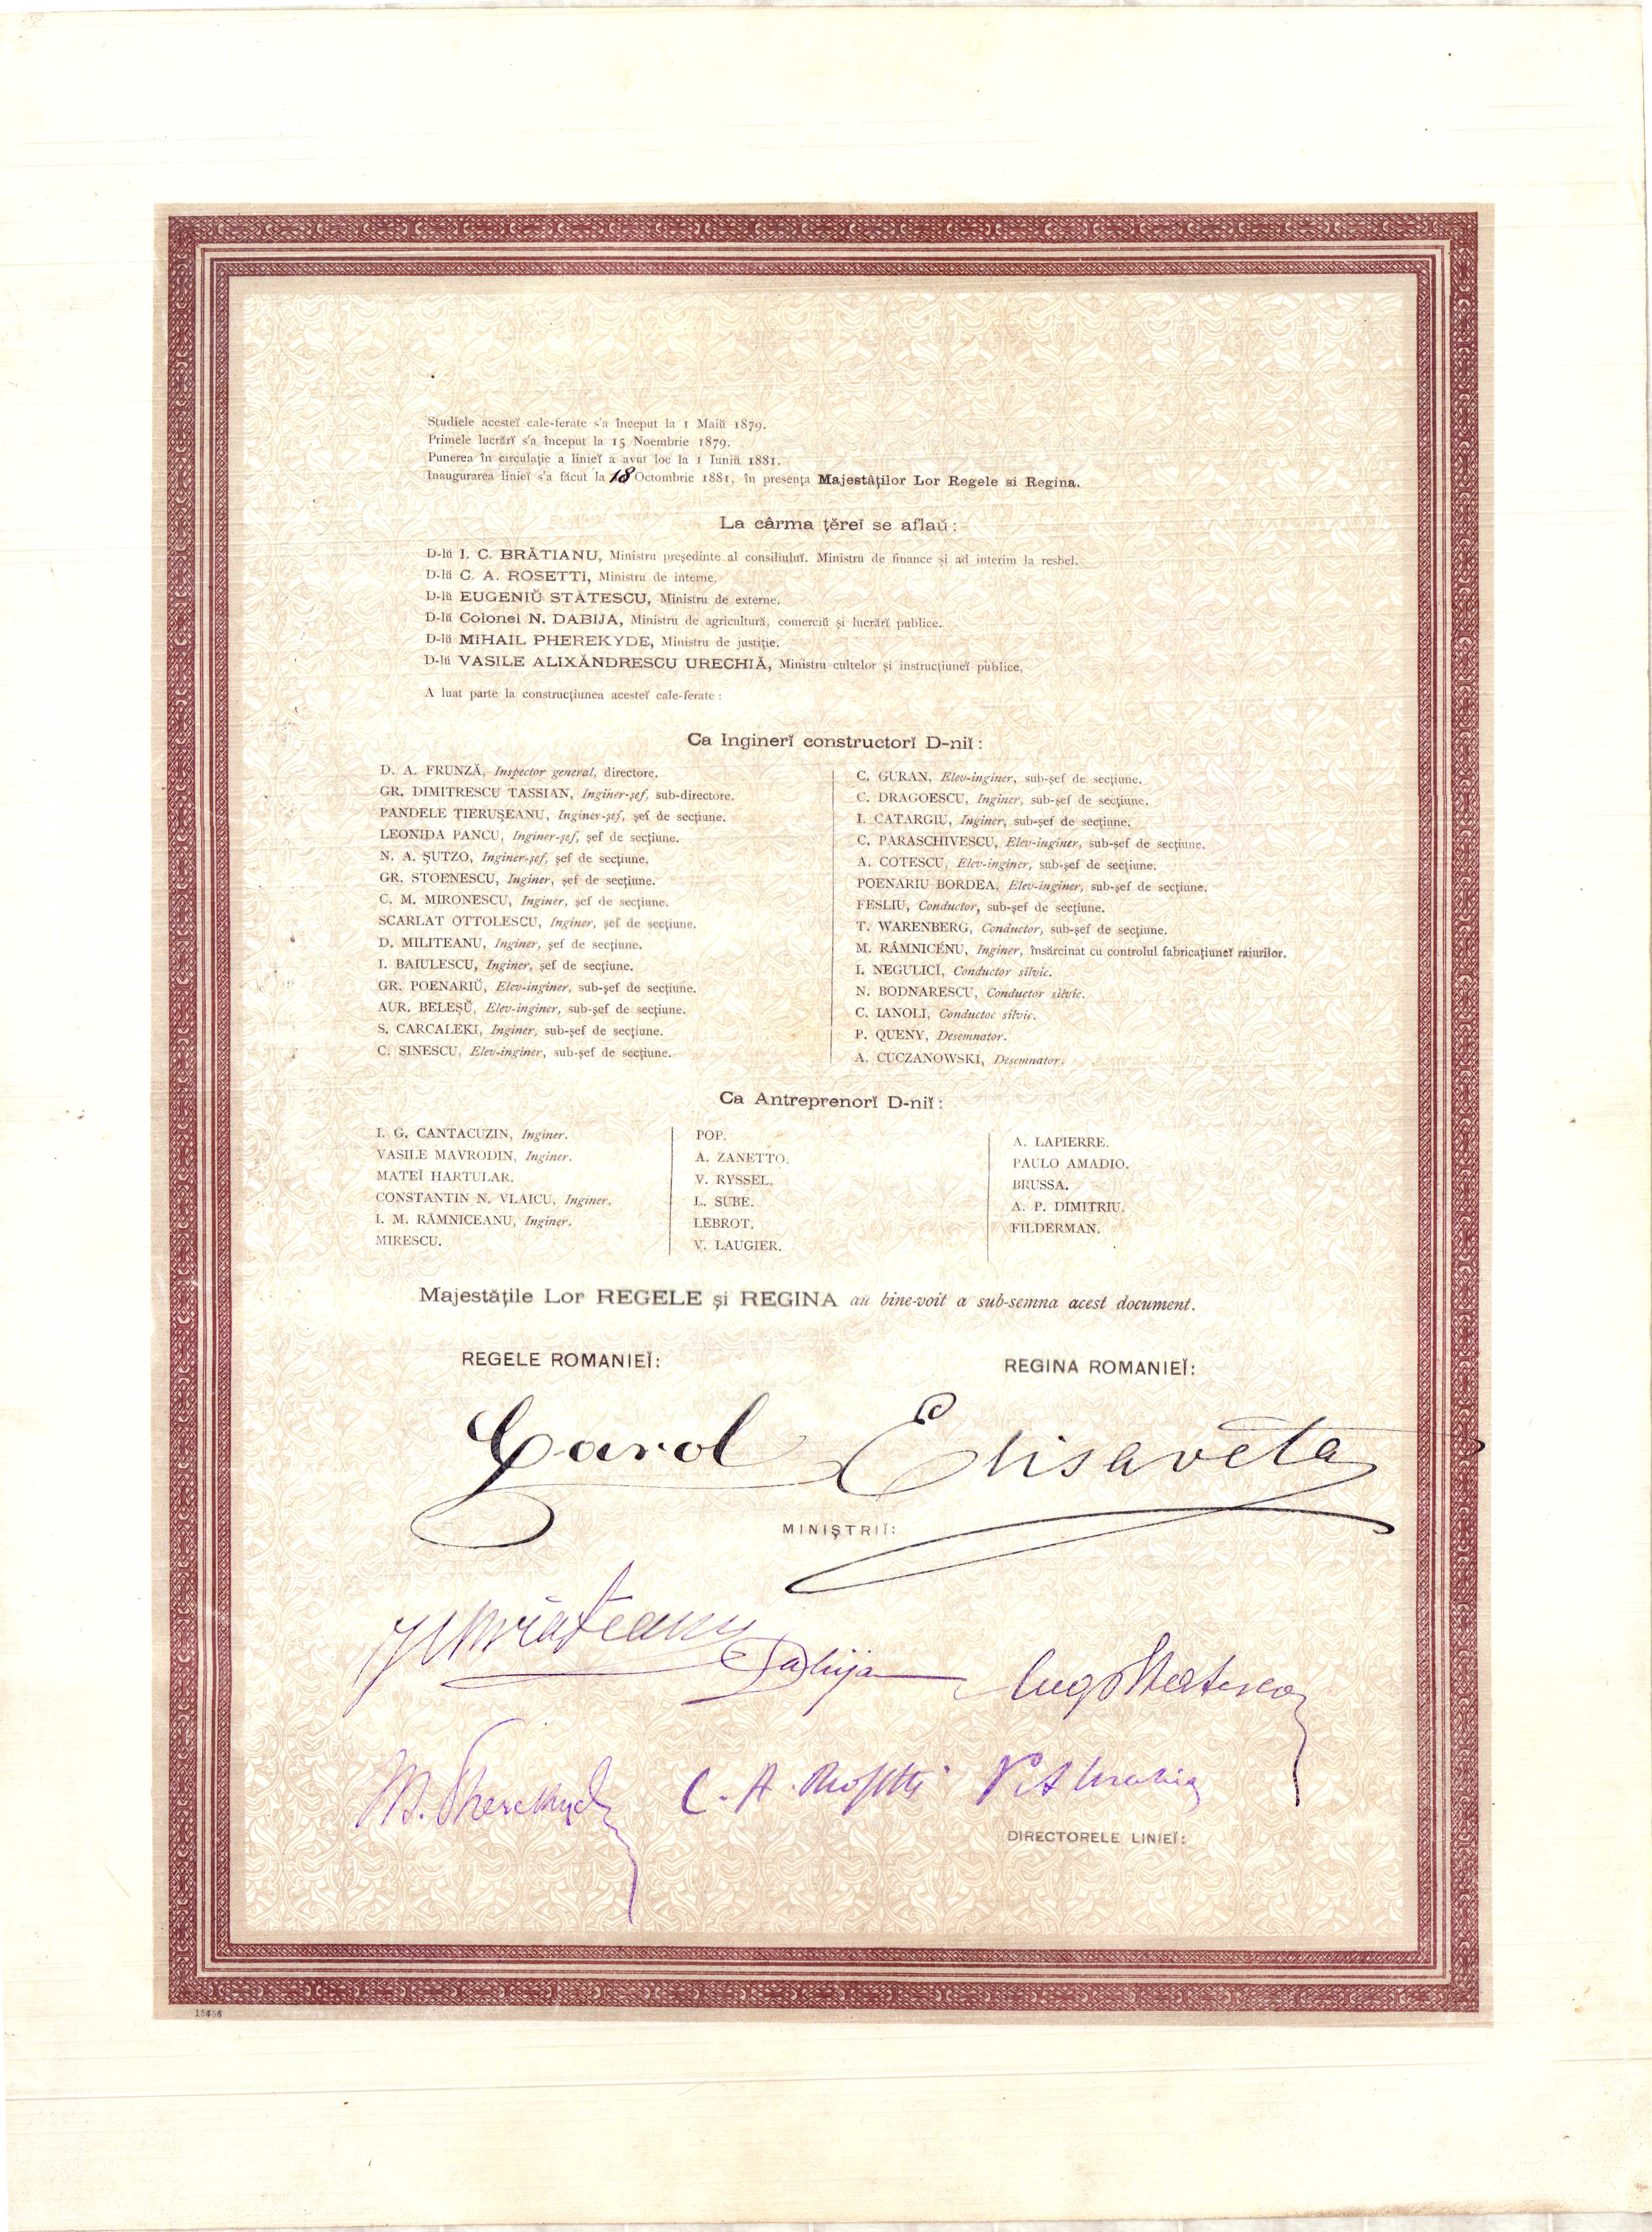 Studiele acesteĭ cale-ferate s'a început la 1 Maiŭ 1879.
Primele lucrărĭ s'a început la 15 Noembrie 1879.
Punerea în circulație a linieĭ a avut loc la 1 Iuniŭ 1881.
Inaugurarea linieĭ s'a făcut la 18 Octombrie 1881, în presența Majestăților Lor Regele si Regina.
La cârma țĕreĭ se aflaŭ:
D-lŭ I. C. BRĂTIANU, Ministru președinte al consiliuluĭ, Ministru de finance și ad interim la resbel.
D-lŭ C. A. ROSETTI, Ministru de interne.
D-lŭ EUGENIŬ STĂTESCU, Ministru de externe.
D-lŭ Colonel N. DABIJA, Ministru de agricultură, comerciŭ și lucrărĭ publice.
D-lŭ MIHAIL PHEREKYDE, Ministru de justiție.
D-lŭ VASILE ALIXĂNDRESCU URECHIĂ, Ministru cultelor și instrucțiuneĭ publice.
A luat parte la construcțiunea acesteĭ cale-ferate:
Ca Ingineri̇̆ constructorĭ D-niĭ:
D. A. FRUNZĂ, Inspector general, directore.
GR. DIMITRESCU TASSIAN, Inginer-șef, sub-directore.
PANDELE ȚIERUȘEANU, Inginer-șef, șef de secțiune.
LEONIDA PANCU, Inginer-șef, șef de secțiune.
N. A. ȘUTZO, Inginer-șef, șef de secțiune.
GR. STOENESCU, Inginer, șef de secțiune.
C. M. MIRONESCU, Inginer, șef de secțiune.
SCARLAT OTTOLESCU, Inginer, șef de secțiune.
D. MILITEANU, Inginer, șef de secțiune.
I. BAIULESCU, Inginer, șef de secțiune.
GR. POENARIŬ, Elev-inginer, sub-șef de secțiune.
AUR. BELEȘŬ, Elev-inginer, sub-șef de secțiune.
S. CARCALEKI, Inginer, sub-șef de secțiune.
C. SINESCU, Elev-inginer, sub-șef de secțiune.
C. GURAN, Elev-inginer, sub-șef de secțiune.
C. DRAGOESCU, Inginer, sub-șef de secțiune.
I. CATARGIU, Inginer, sub-șef de secțiune.
C. PARASCHIVESCU, Elev-inginer, sub-șef de secțiune.
A. COTESCU, Elev-inginer, sub-șef de secțiune.
POENARIU BORDEA, Elev-inginer, sub-șef de secțiune.
FESLIU, Conductor, sub-șef de secțiune.
T. WARENBERG, Conductor, sub-șef de secțiune.
M. RÂMNICÉNU, Inginer, însărcinat cu controlul fabricațiuneĭ raiurilor.
I. NEGULICĬ, Conductor silvic.
N. BODNARESCU, Conductor silvic.
C. IANOLI, Conductoc silvic.
P. QUENY, Desemnator.
A. CUCZANOWSKI, Desemnator.
Ca Antreprenorĭ D-niĭ:
I. G. CANTACUZIN, Inginer.
VASILE MAVRODIN, Inginer.
MATEĬ HARTULAR.
CONSTANTIN N. VLAICU, Inginer.
I. M. RÂMNICEANU, Inginer.
MIRESCU.
POP.
A. ZANETTO.
V. RYSSEL.
L. SUBE.
LEBROT.
V. LAUGIER.
A. LAPIERRE.
PAULO AMADIO.
BRUSSA.
A. P. DIMITRIU.
FILDERMAN.
Majestățile Lor REGELE și REGINA au bine-voit a sub-semna acest document.
REGELE ROMANIEĬ:
REGINA ROMANIEĬ:
Carol
Elisaveta
MINIȘTRIĬ:
Dabija
M. Pherekyde
C. A. Rosetti
V. A. Urechia
DIRECTORELE LINIEĬ:
15456